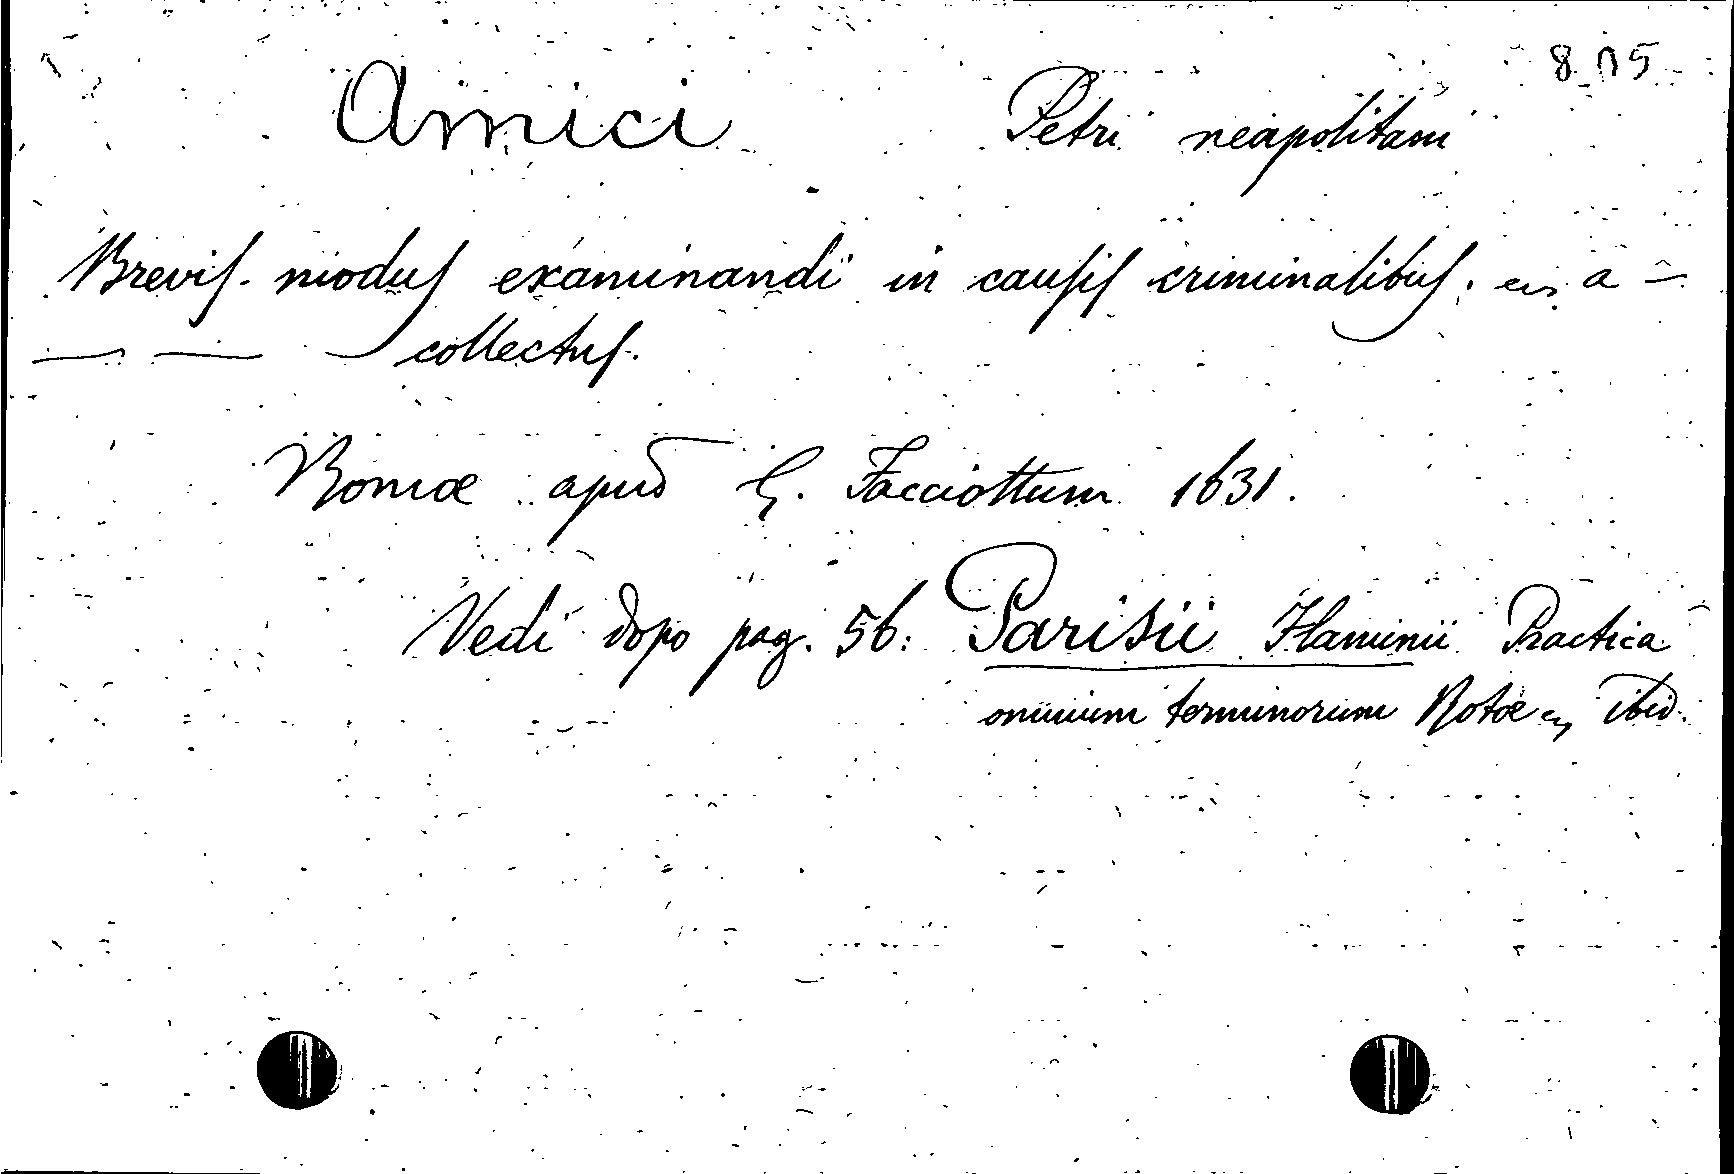 8 n 5
Amici Petri neapolitani
Brevis modus examinandi in causis criminalibus. a —
— — — collectus.
Romæ apud G. Facciottum 1631.
Vedi dopo pag. 56: Parisii Flaminii Practica
omnium terminorum Rotæ ibid.